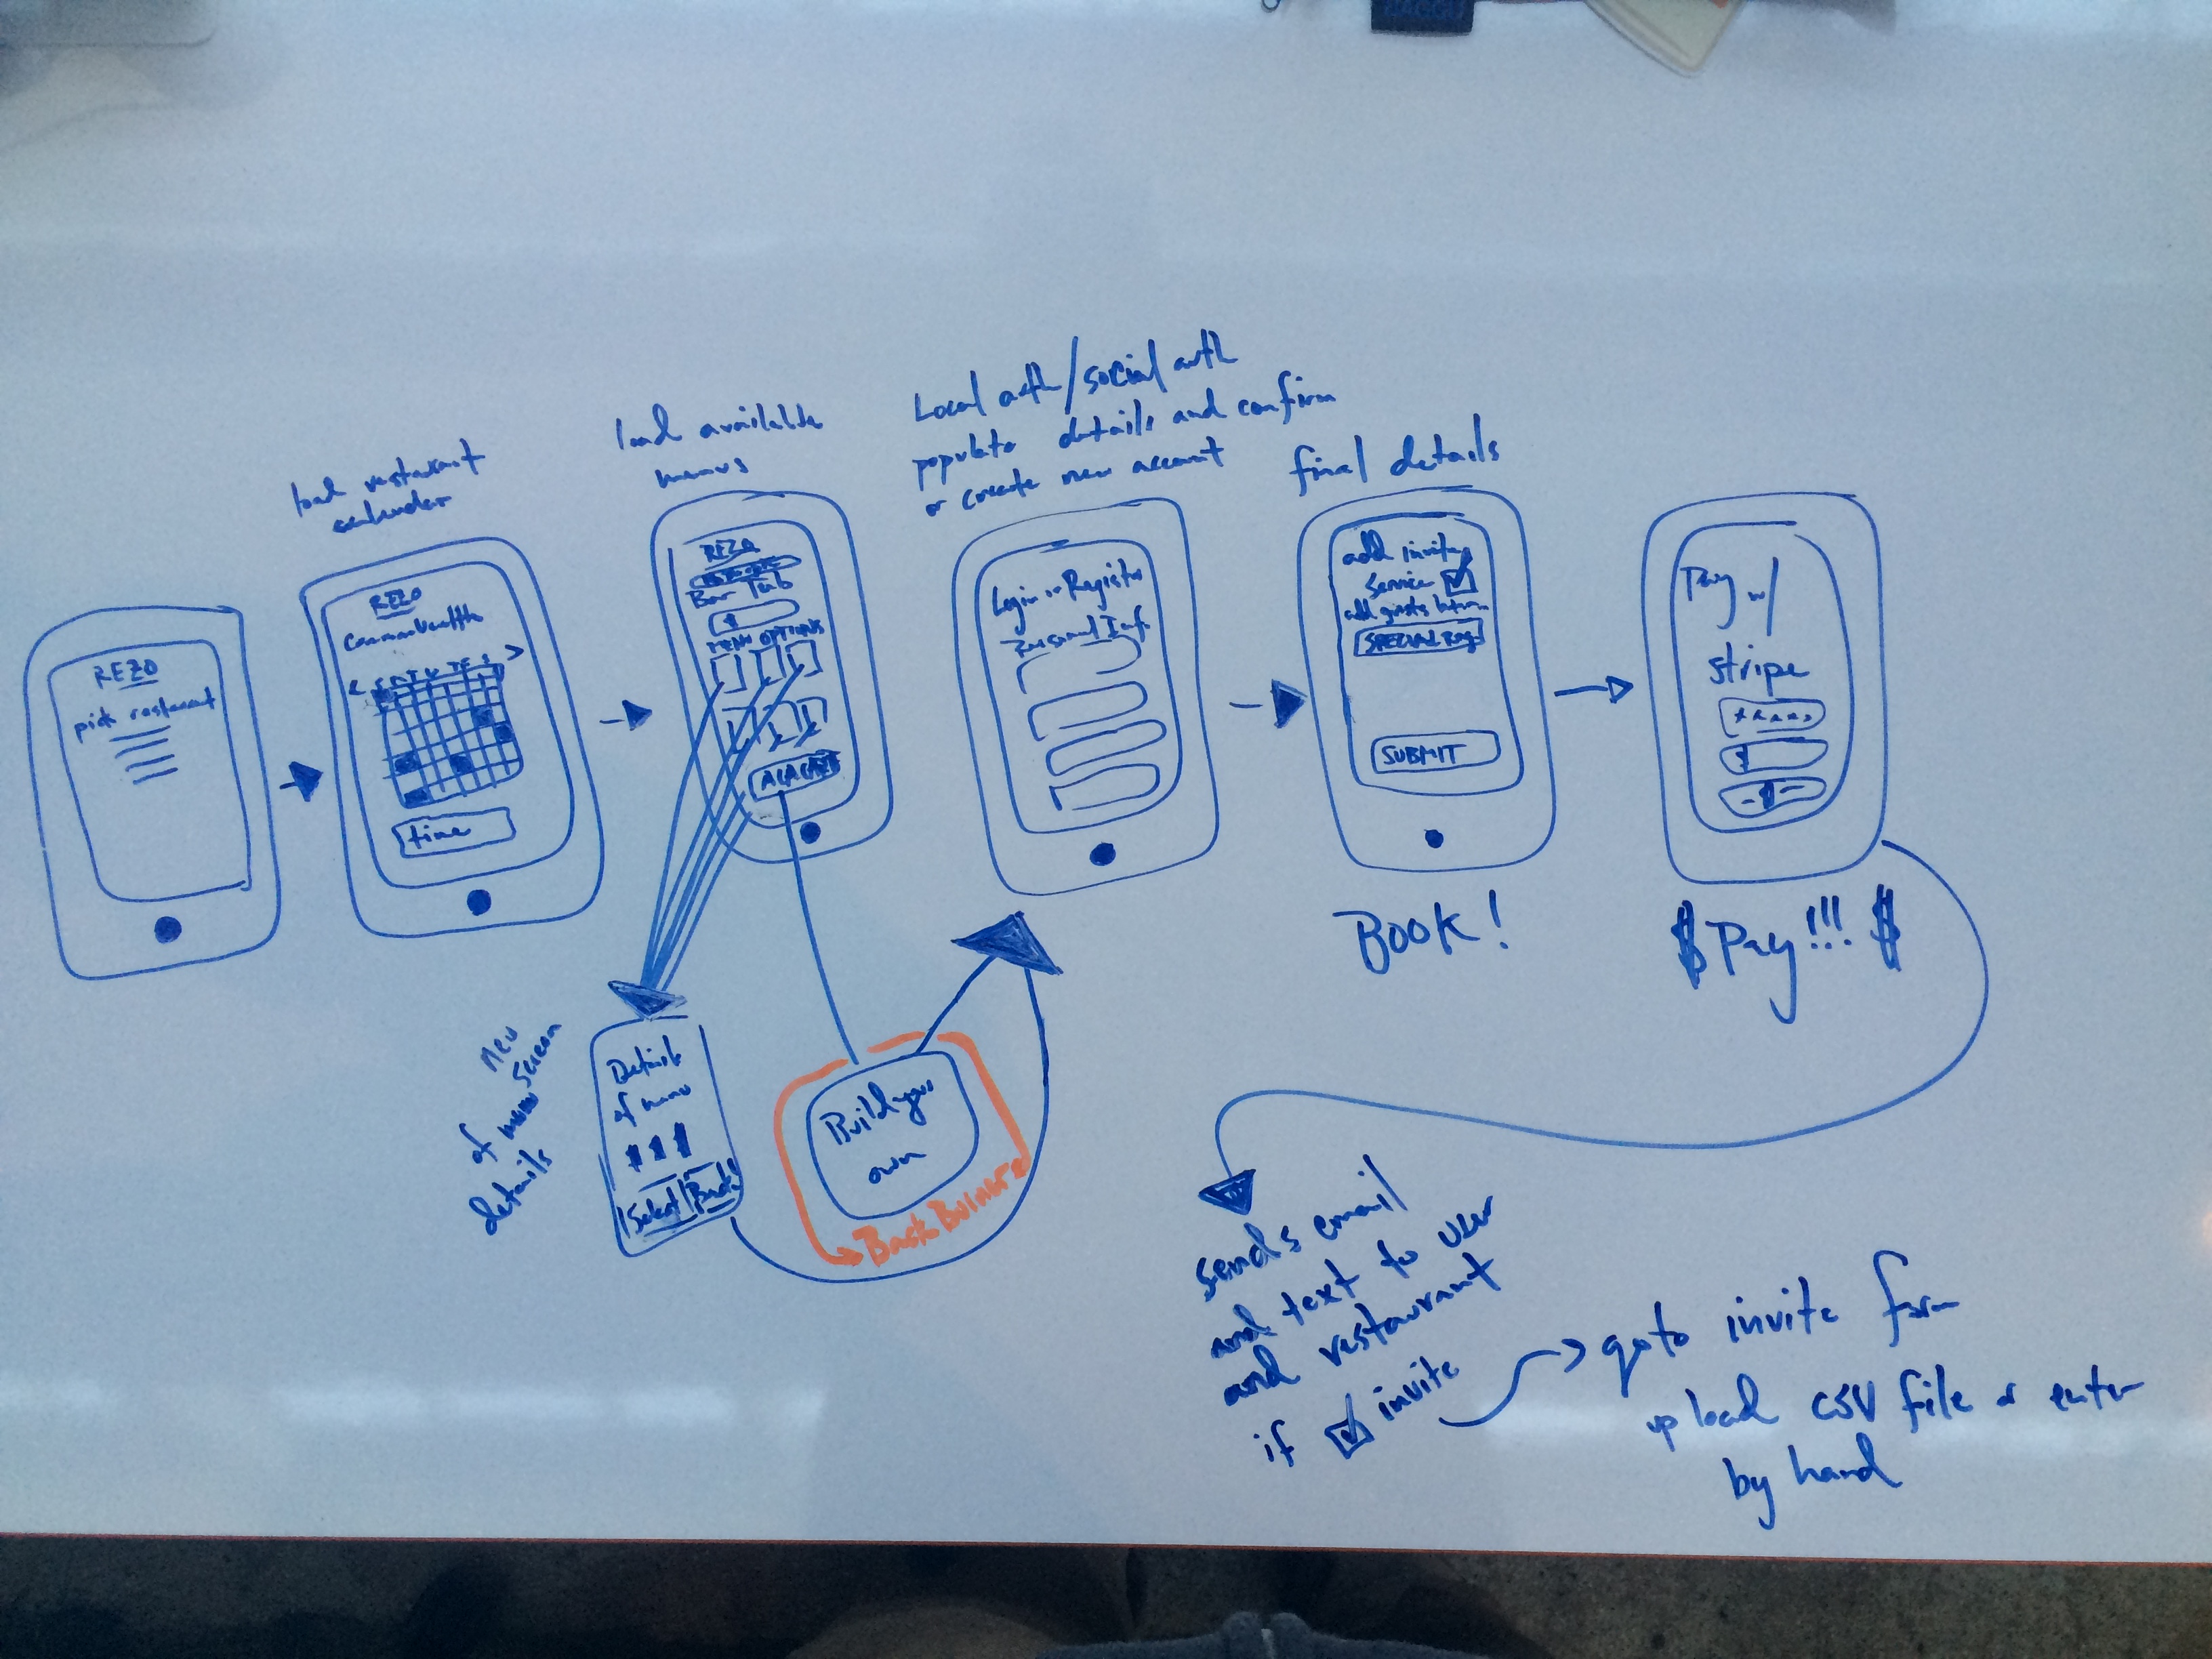 REZO
pick restaurant
load restaurant
calender
REZO
Commonwealth
< >
time
load available
menus
REZO
Bar Tab
$
MENU OPTIONS
ALACARTE
new
screen
of menu
details
Details
of menu
Select
Back
Build your
own
Local auth/social auth
populate details and confirm
or create new account
Login or Register
Personal Inf
final details
add invite
service
SPECIAL REQ
SUBMIT
Book!
Pay w/
stripe
$ Pay!!! $
sends email
and text to user
and restaurant
if ☑ invite
go to invite form
upload CSV file or enter
by hand